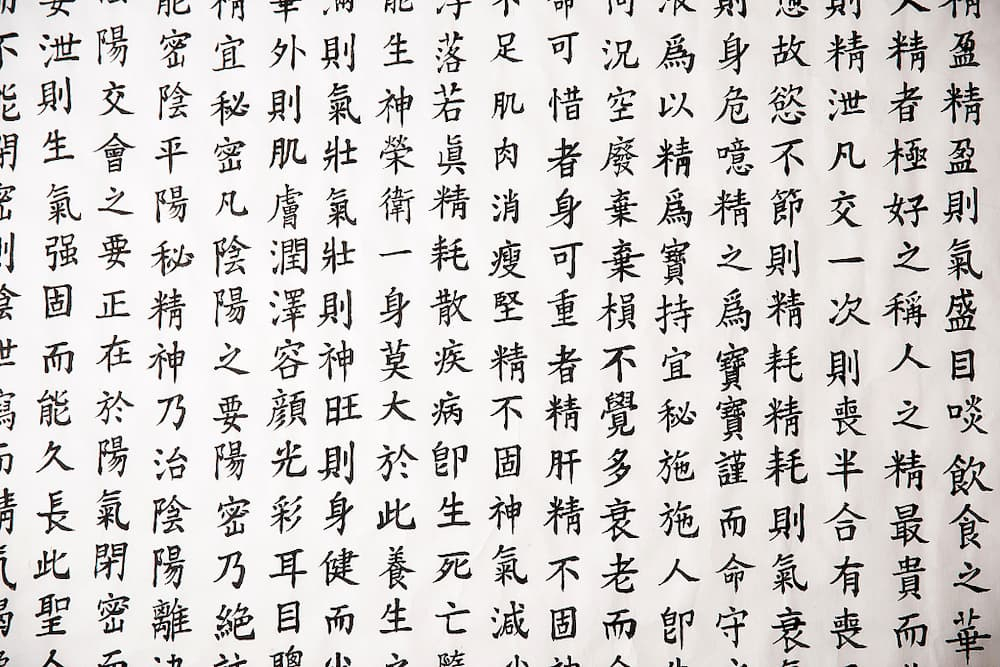 精盈精盈則氣盛目啖飲食之華
人精者極好之稱人之精最貴而
則精泄凡交一次則喪半合有喪
故慾不節則精耗精耗則氣衰
則身危噫精之爲寶寶謹而命守
液爲以精爲寶持宜秘施施人卽
何況空廢棄棄損不覺多衰老而
命可惜者身可重者精肝精不固神
不足肌肉消瘦堅精不固神氣減少
浮落若眞精耗散疾病卽生死亡隨
能生神榮衛一身莫大於此養生之
滿則氣壯氣壯則神旺則身健而少
華外則肌膚潤澤容顏光彩耳目聰
精宜秘密凡陰陽之要陽密乃絕
能密陰平陽秘精神乃治陰陽離決
陽交會之要正在於陽氣閉密而
妄泄則生氣强固而能久長此聖人
不能閉密則陰泄寫而精氣竭